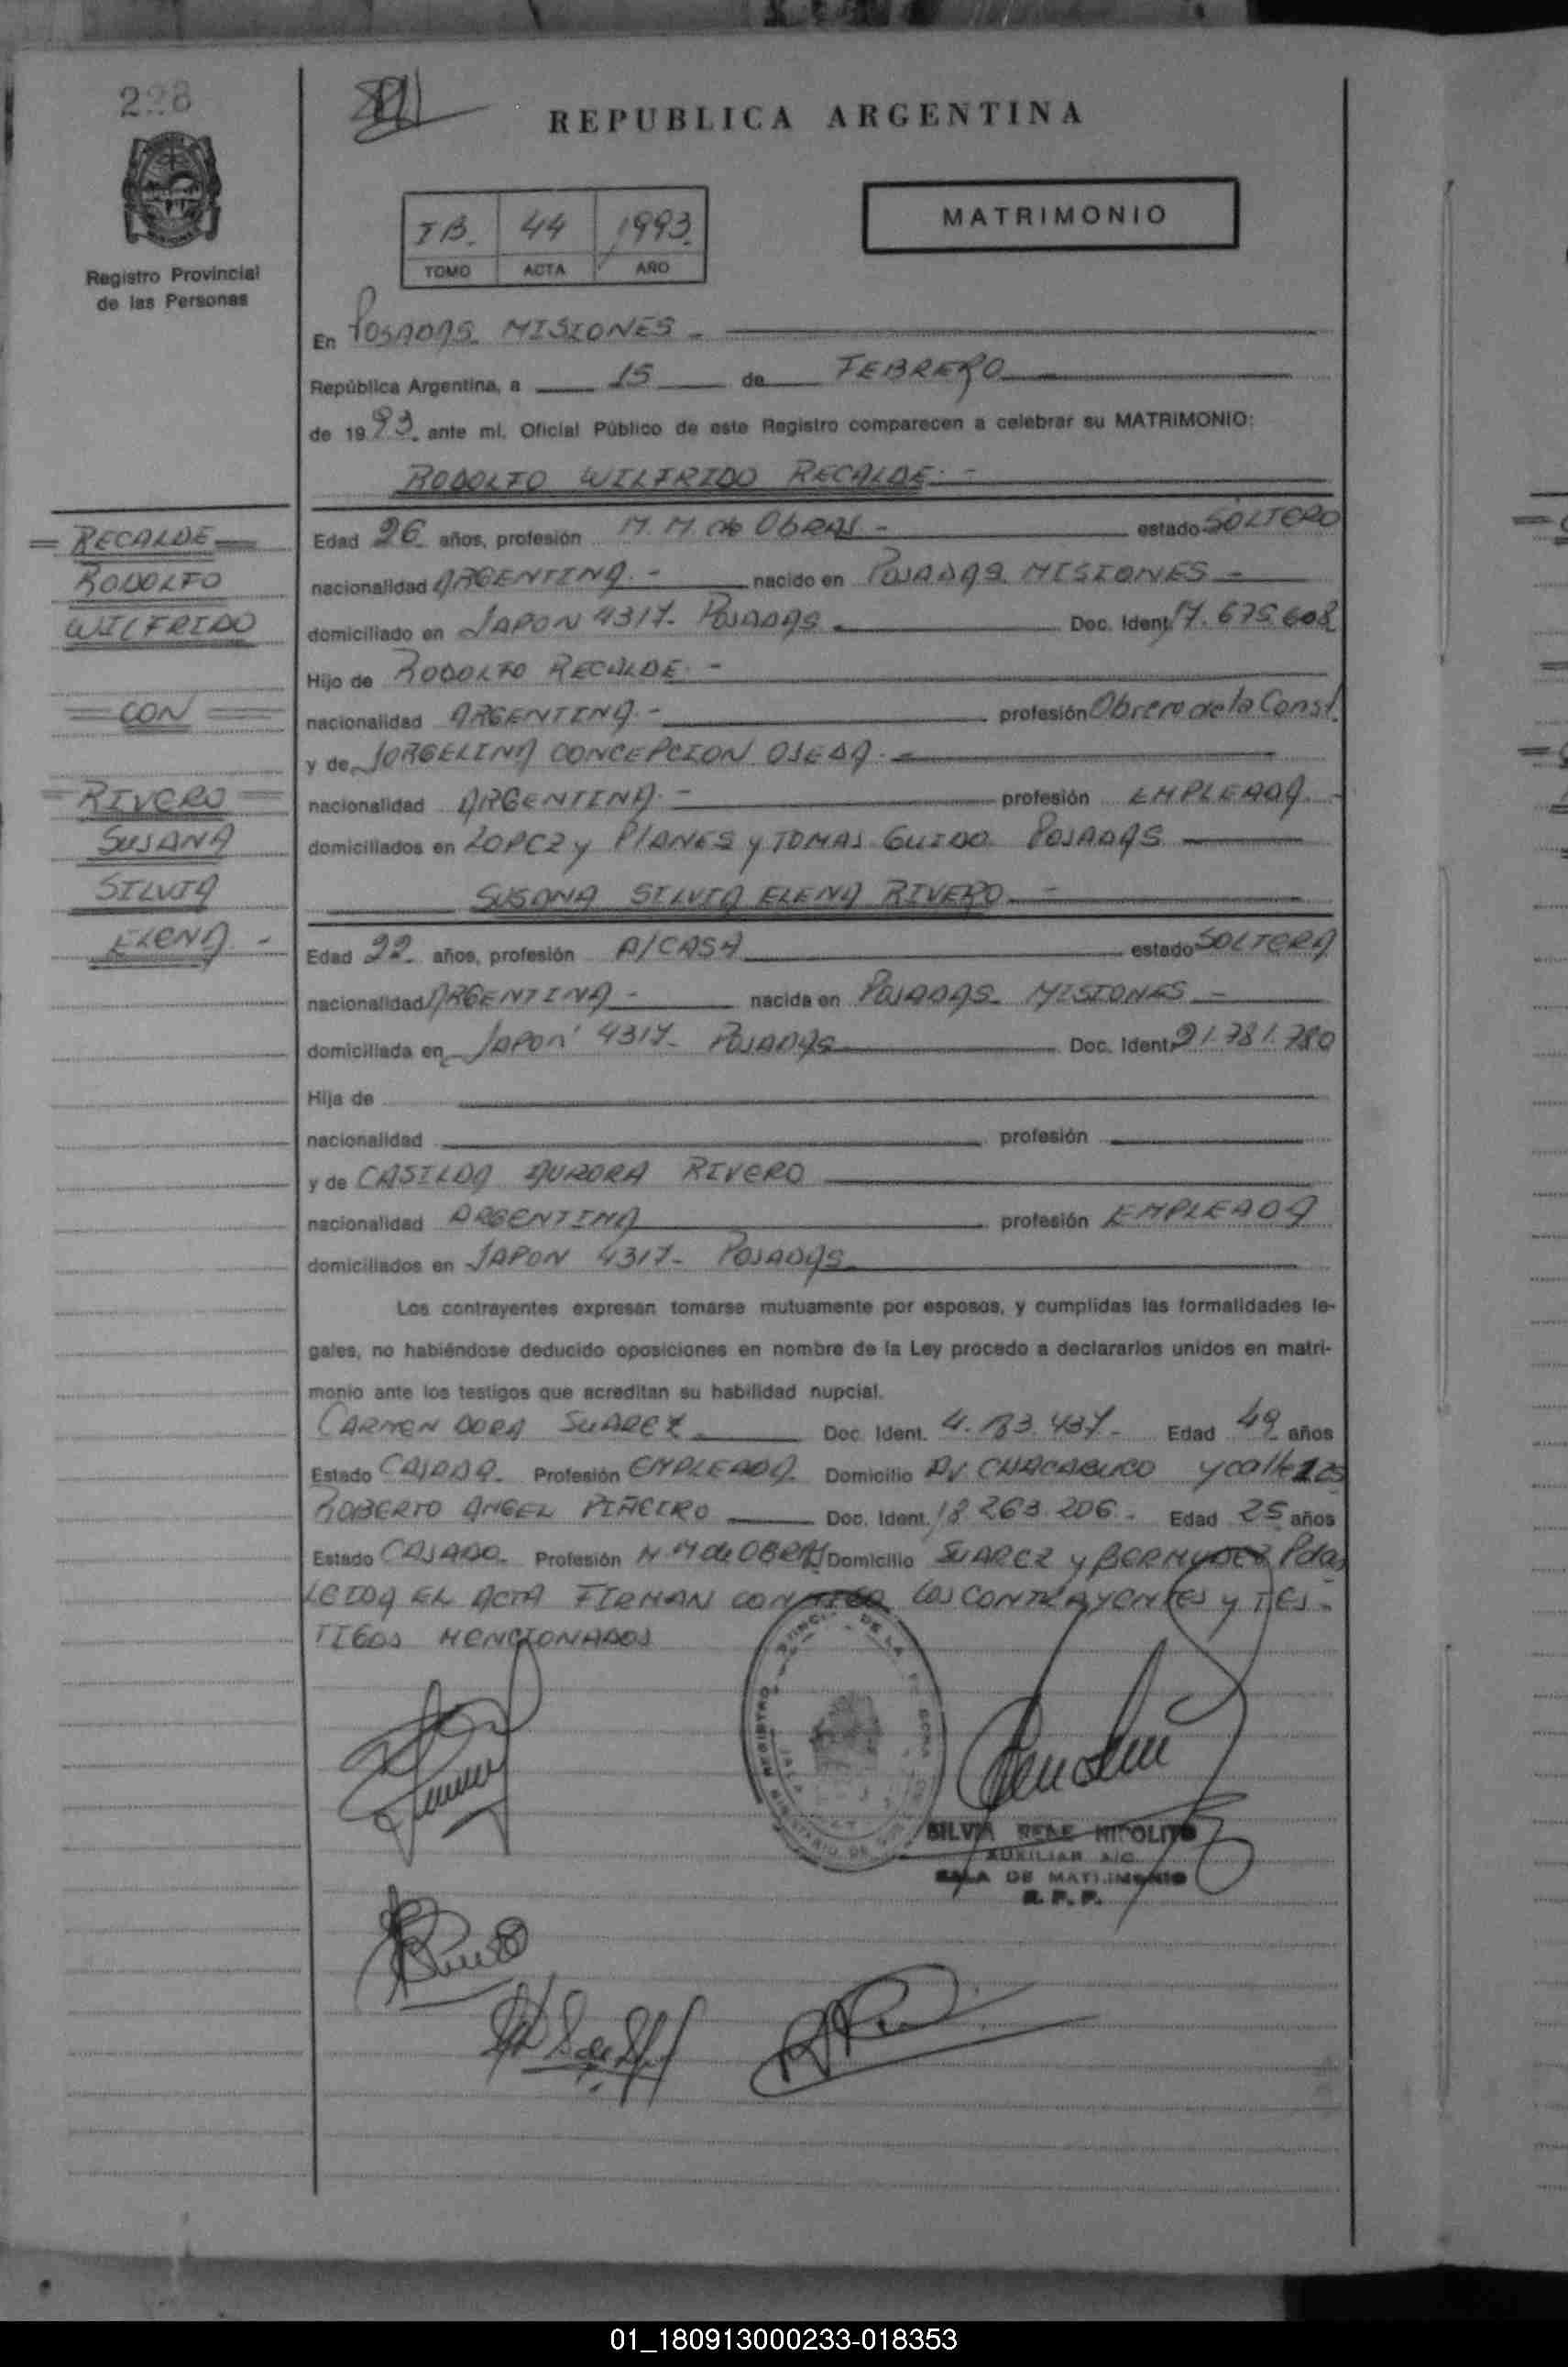 228
REPUBLICA ARGENTINA
Registro Provincial
de las Personas
TB. 44 1993.
TOMO ACTA AÑO
MATRIMONIO
En POSADAS MISIONES -
República Argentina, a 15 de FEBRERO
de 1993. ante mí, Oficial Público de este Registro comparecen a celebrar su MATRIMONIO:
RODOLFO WILFRIDO RECALDE. -
RECALDE
RODOLFO
WILFRIDO
CON
RIVERO
SUSANA
SILVIA
ELENA -
Edad 26 años, profesión M.M. de Obras - estado SOLTERO
nacionalidad ARGENTINA. - nacido en POSADAS MISIONES -
domiciliado en JAPON 4317- POSADAS Doc. Ident. 17.675.608
Hijo de RODOLFO RECALDE. -
nacionalidad ARGENTINA. - profesión Obrero de la Const.
y de JORGELINA CONCEPCION OJEDA. -
nacionalidad ARGENTINA. - profesión EMPLEADA. -
domiciliados en LOPEZ y PLANES y TOMAS GUIDO POSADAS
SUSANA SILVIA ELENA RIVERO -
Edad 22 años, profesión A/CASA estado SOLTERA
nacionalidad ARGENTINA - nacida en POSADAS MISIONES -
domiciliada en JAPON 4317- POSADAS Doc. Ident. 21.781.780
Hija de
nacionalidad profesión
y de CASILDA AURORA RIVERO
nacionalidad ARGENTINA profesión EMPLEADA
domiciliados en JAPON 4317- POSADAS
Los contrayentes expresan tomarse mutuamente por esposos, y cumplidas las formalidades le-
gales, no habiéndose deducido oposiciones en nombre de la Ley procedo a declararlos unidos en matri-
monio ante los testigos que acreditan su habilidad nupcial.
CARMEN DORA SUAREZ Doc. Ident. 437- Edad 49 años
Estado CASADA. Profesión EMPLEADA. Domicilio AV. CHACABUCO y calle
ROBERTO ANGEL PIÑEIRO Doc. Ident. 18.263.206. Edad 25 años
Estado CASADO. Profesión M.M de OBRAS Domicilio SUAREZ y BERMUDEZ Pdas
LEIDA EL ACTA FIRMAN LOS CONTRAYENTES y TES-
TIGOS MENCIONADOS
SILVIA HIPOLITO
AUXILIAR A/C
SALA DE MATRIMONIO
R.P.P.
01_180913000233-018353